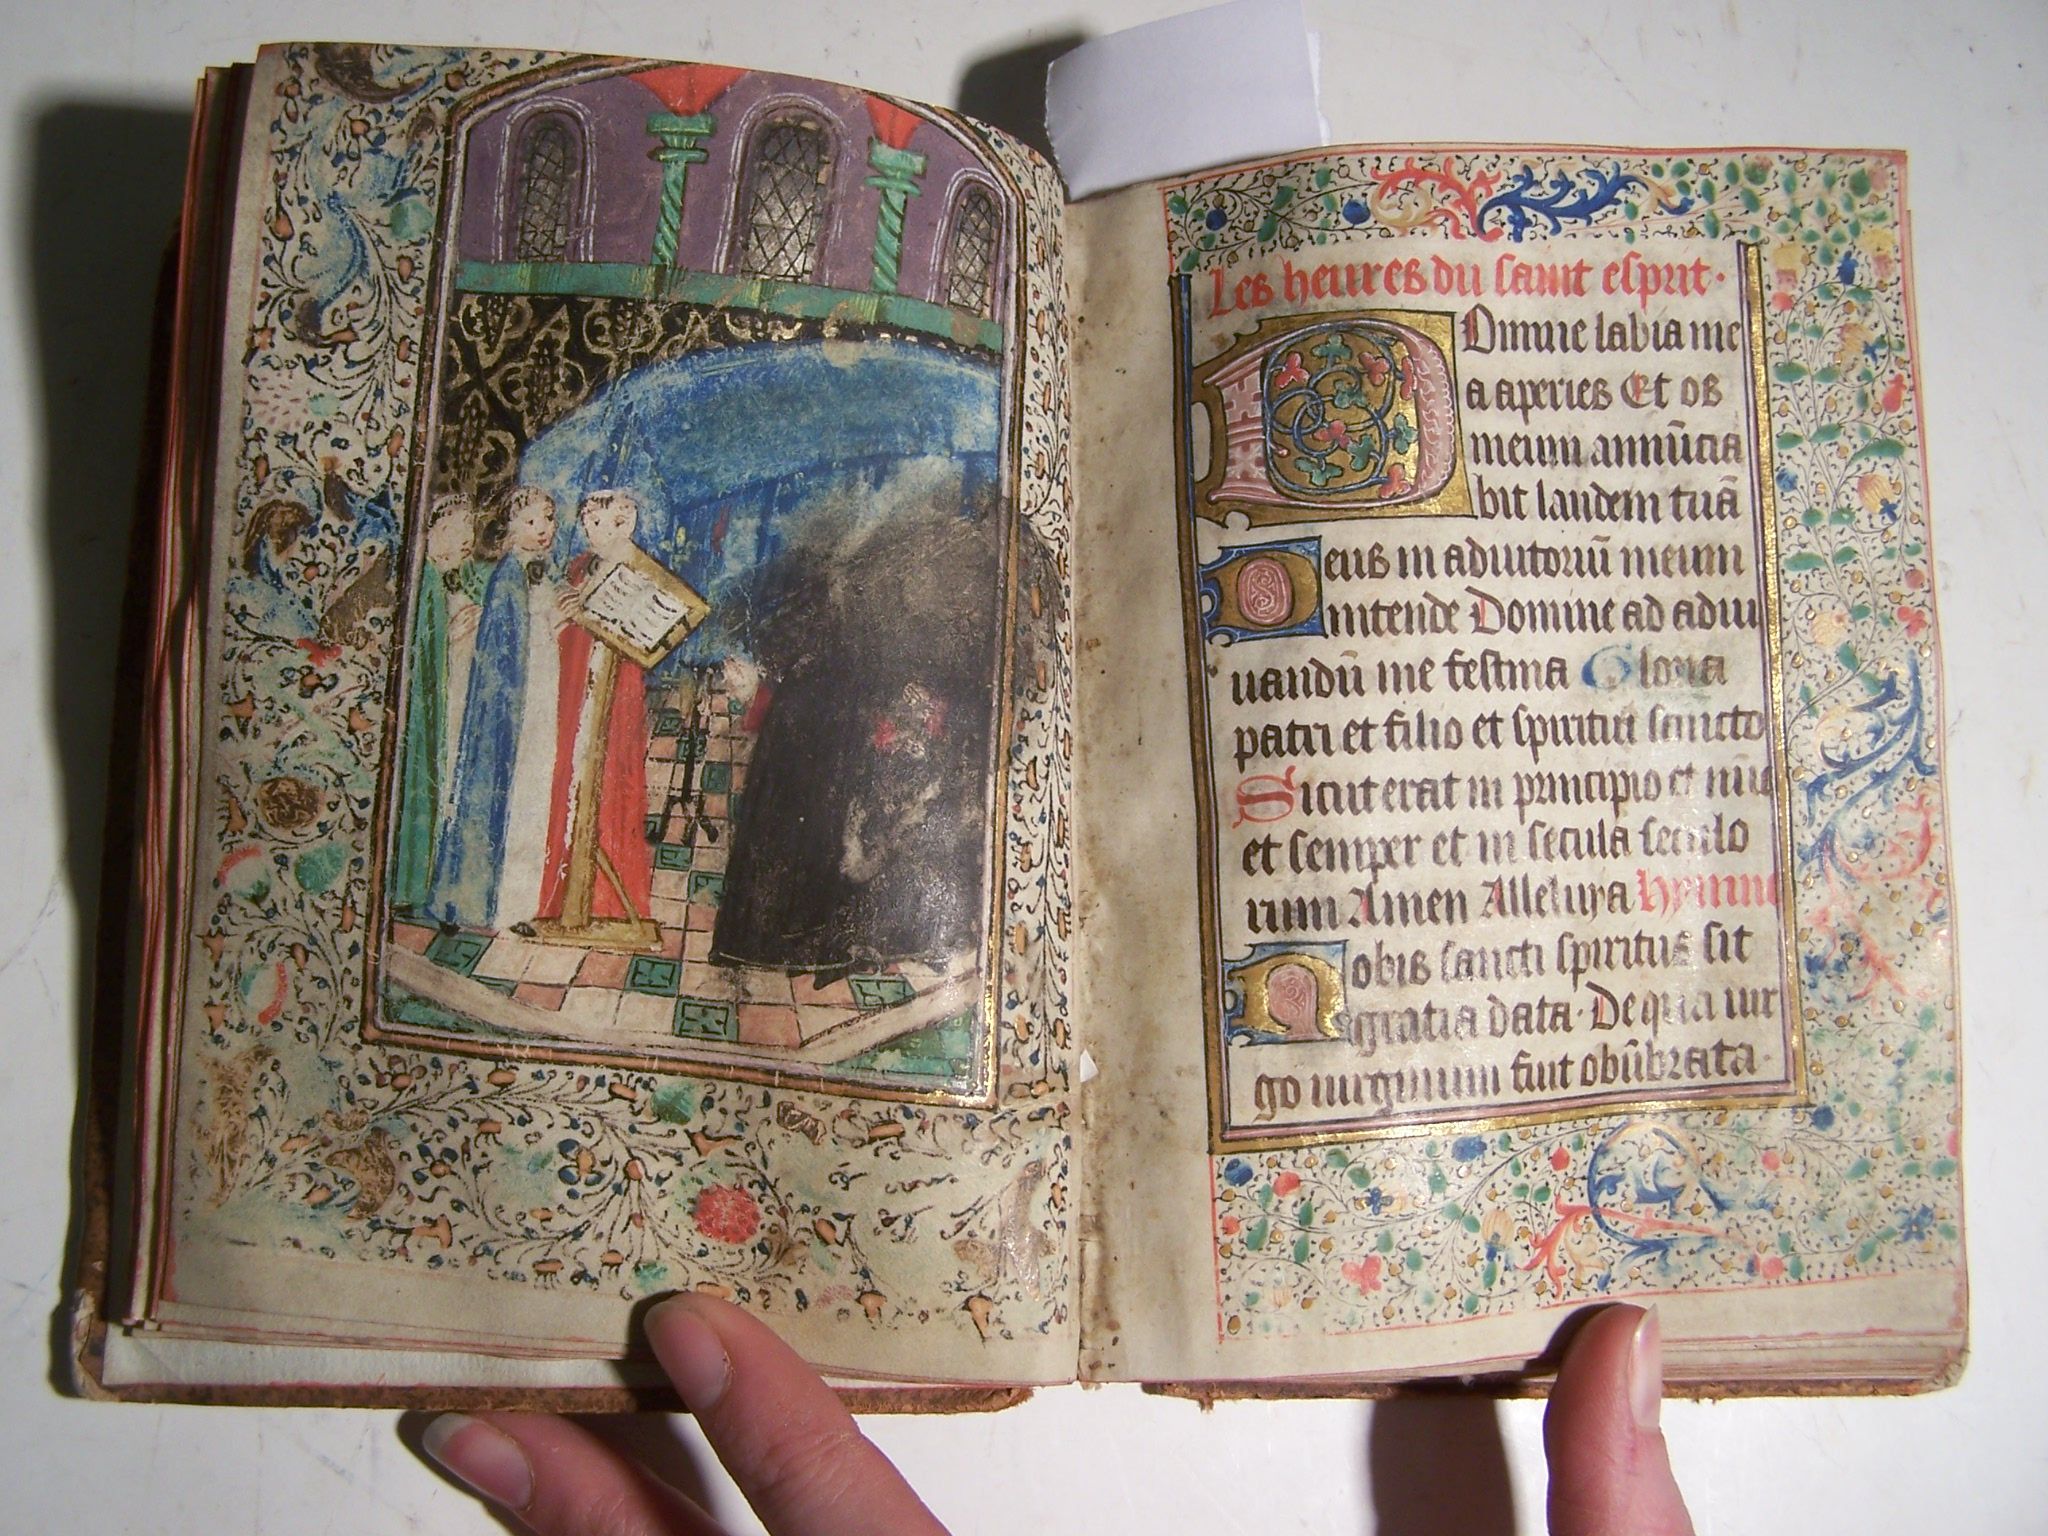 Les heures du saint esprit·
Domine labia me
a aperies Et os
meum annūcia
bit laudem tuā
Deus in adiutoriū meum
intende Domine ad adiu
uandū me festina Gloria
patri et filio et spiritui sancto
Sicut erat in principio et nūc
et semper et in secula seculo
rum Amen Alleluya Hymne
Nobis sancti spiritus sit
gratia data· De qua uir
go uirginum fuit obūbrata·